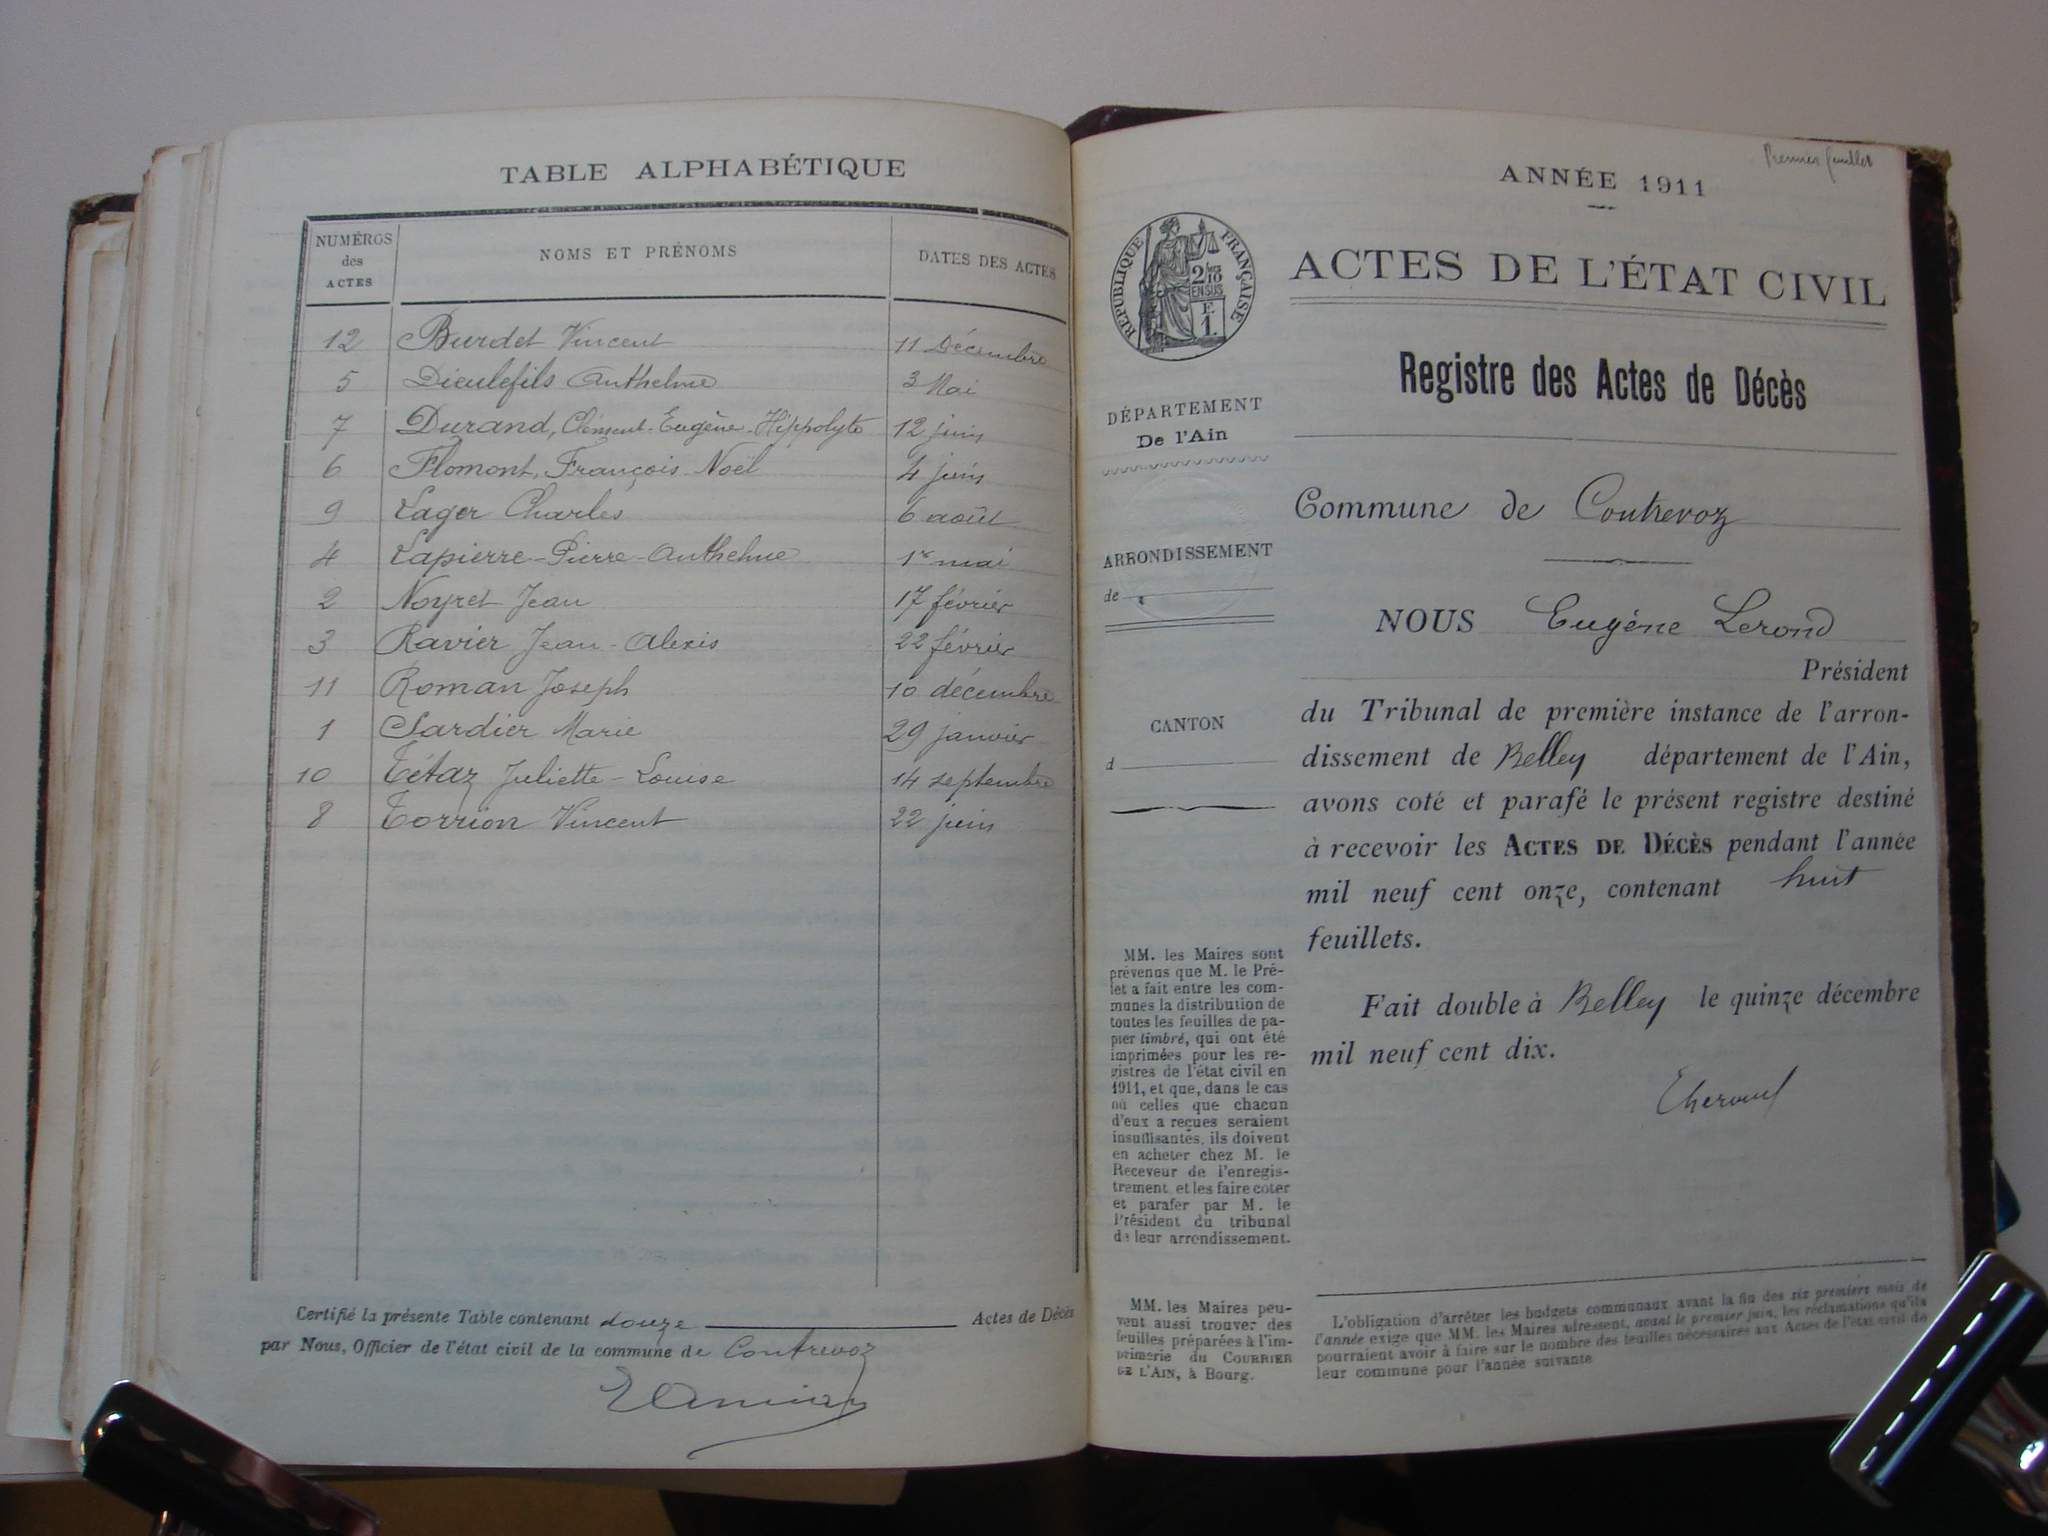 TABLE ALPHABÉTIQUE
NUMÉROS
des
ACTES
NOMS ET PRÉNOMS
DATES DES ACTES
12 Burdet Vincent 11 Décembre
5 Dieulefils Anthelme 3 Mai
7 Durand, Clément-Eugène-Hippolyte 12 juin
6 Flomont, François-Noël 4 juin
9 Lager Charles 6 août
4 Lapierre-Pierre-Anthelme 1er mai
2 Noyret Jean 17 février
3 Ravier Jean-Alexis 22 février
11 Roman Joseph 10 décembre
1 Sardier Marie 29 janvier
10 Tétaz Juliette-Louise 14 septembre
8 Torrion Vincent 22 juin
Certifié la présente Table contenant douze Actes de Décès
par Nous, Officier de l'état civil de la commune de Contrevoz
Premier feuillet
ANNÉE 1911
RÉPUBLIQUE FRANÇAISE
2/10
EN SUS
E
1.
ACTES DE L'ÉTAT CIVIL
Registre des Actes de Décès
DÉPARTEMENT
De l'Ain
Commune de Contrevoz
ARRONDISSEMENT
de
NOUS Eugène Lerond
Président
CANTON
d
du Tribunal de première instance de l'arron-
dissement de Belley département de l'Ain,
avons coté et parafé le présent registre destiné
à recevoir les ACTES DE DÉCÈS pendant l'année
mil neuf cent onze, contenant huit
feuillets.
Fait double à Belley le quinze décembre
mil neuf cent dix.
MM. les Maires sont
prévenus que M. le Pré-
fet a fait entre les com-
munes la distribution de
toutes les feuilles de pa-
pier timbré, qui ont été
imprimées pour les re-
gistres de l'état civil en
1911, et que, dans le cas
où celles que chacun
d'eux a reçues seraient
insuffisantes, ils doivent
en acheter chez M. le
Receveur de l'enregis-
trement, et les faire coter
et parafer par M. le
Président du tribunal
de leur arrondissement.
MM. les Maires peu-
vent aussi trouver des
feuilles préparées à l'im-
primerie du COURRIER
DE L'AIN, à Bourg.
L'obligation d'arrêter les budgets communaux avant la fin des six premiers mois de
l'année exige que MM. les Maires adressent, avant le premier juin, les réclamations qu'ils
pourraient avoir à faire sur le nombre des feuilles nécessaires aux Actes de l'état civil de
leur commune pour l'année suivante